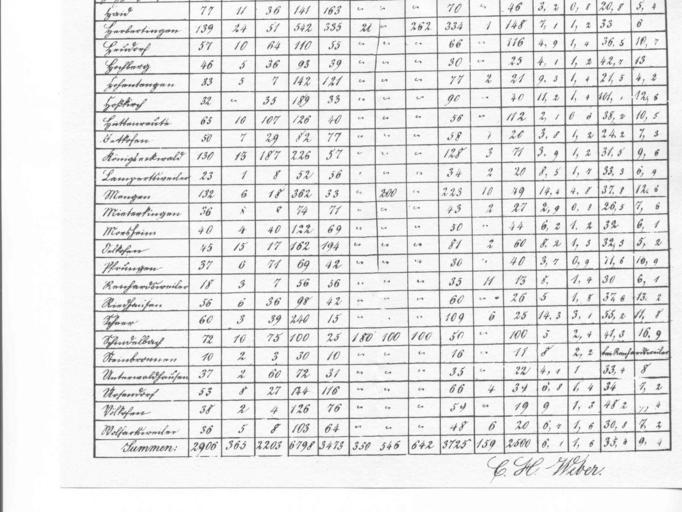 Haid 77 11 36 141 163 " " " 70 " 46 3,2 0,8 20,8 5,4
Herbertingen 139 24 51 542 335 " 262 334 1 148 7,1 1,2 33 6
Heudorf 57 10 64 110 55 " " " 66 " 116 4,9 1,4 36,5 10,7
Hochberg 46 5 36 93 39 " " " 30 " 25 4,1 1,2 42,7 13
Hohentengen 83 5 7 142 121 " " " 77 2 21 9,3 1,4 21,5 4,2
Hoßkirch 32 " 35 189 33 " " " 90 " 40 11,2 1,4 101,1 12,6
Hüttenreute 63 10 107 126 40 " " " 56 " 112 2,1 38,2 10,5
50 7 29 82 77 " " " 58 1 26 3,8 1,2 24,2 7,3
Königseckwald 130 13 187 226 57 " " " 128 3 71 3,9 1,2 31,5 9,6
Lampertsweiler 23 1 8 52 56 " " " 34 2 20 8,5 1,7 33,3 6,9
Mengen 132 6 18 362 33 " 200 " 223 10 49 14,4 4,8 37,8 12,6
Mieterkingen 36 8 8 74 71 " " " 43 2 27 2,9 0,8 26,5 7,6
Moosheim 40 4 40 122 69 " " " 30 " 44 6,2 1,2 32 6,1
Ölkofen 45 15 17 162 194 " " " 81 2 60 8,2 1,3 32,3 5,2
Pfrungen 37 6 71 69 42 " " " 30 " 40 3,7 0,9 71,6 16,9
Renhardsweiler 18 3 7 56 36 " " " 35 11 13 8, 1,4 30 6,1
Riedhausen 36 6 36 98 42 " " " 60 " 26 5 1,8 37,6 13,2
Scheer 60 3 39 240 15 " " " 109 6 25 14,3 3,1 35,2 11,8
Schindelbach 72 10 75 100 25 180 100 100 50 " 100 3 2,4 41,3 16,9
Steinbronnen 10 2 3 30 10 " " " 16 " 11 8 2,2 bei Renhardsweiler
Unterwaldhausen 37 2 60 72 31 " " " 35 " 22 4,1 1 33,4 8
Ursendorf 53 8 27 134 116 " " " 66 4 39 6,8 1,4 34 7,2
Völlkofen 38 2 4 126 76 " " " 54 " 19 9 1,3 48,2
Wolfartsweiler 36 5 8 103 64 " " " 48 6 20 6,7 1,6 30,8 7,2
Summen: 2906 365 2203 6798 3473 350 546 642 3725 159 2600 6,1 1,6 35,4 9,4
C. H. Weber.